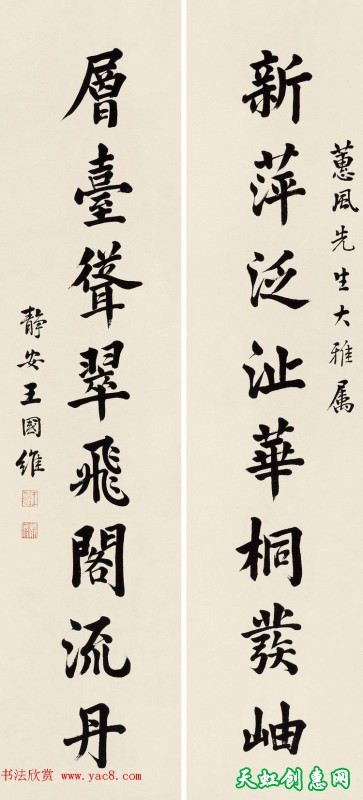 蕙風先生大雅属
新萍泛沚華桐發岫
層臺聳翠飛閣流丹
静安王國維
书法欣赏 www.yac8.com
天虹创惠网